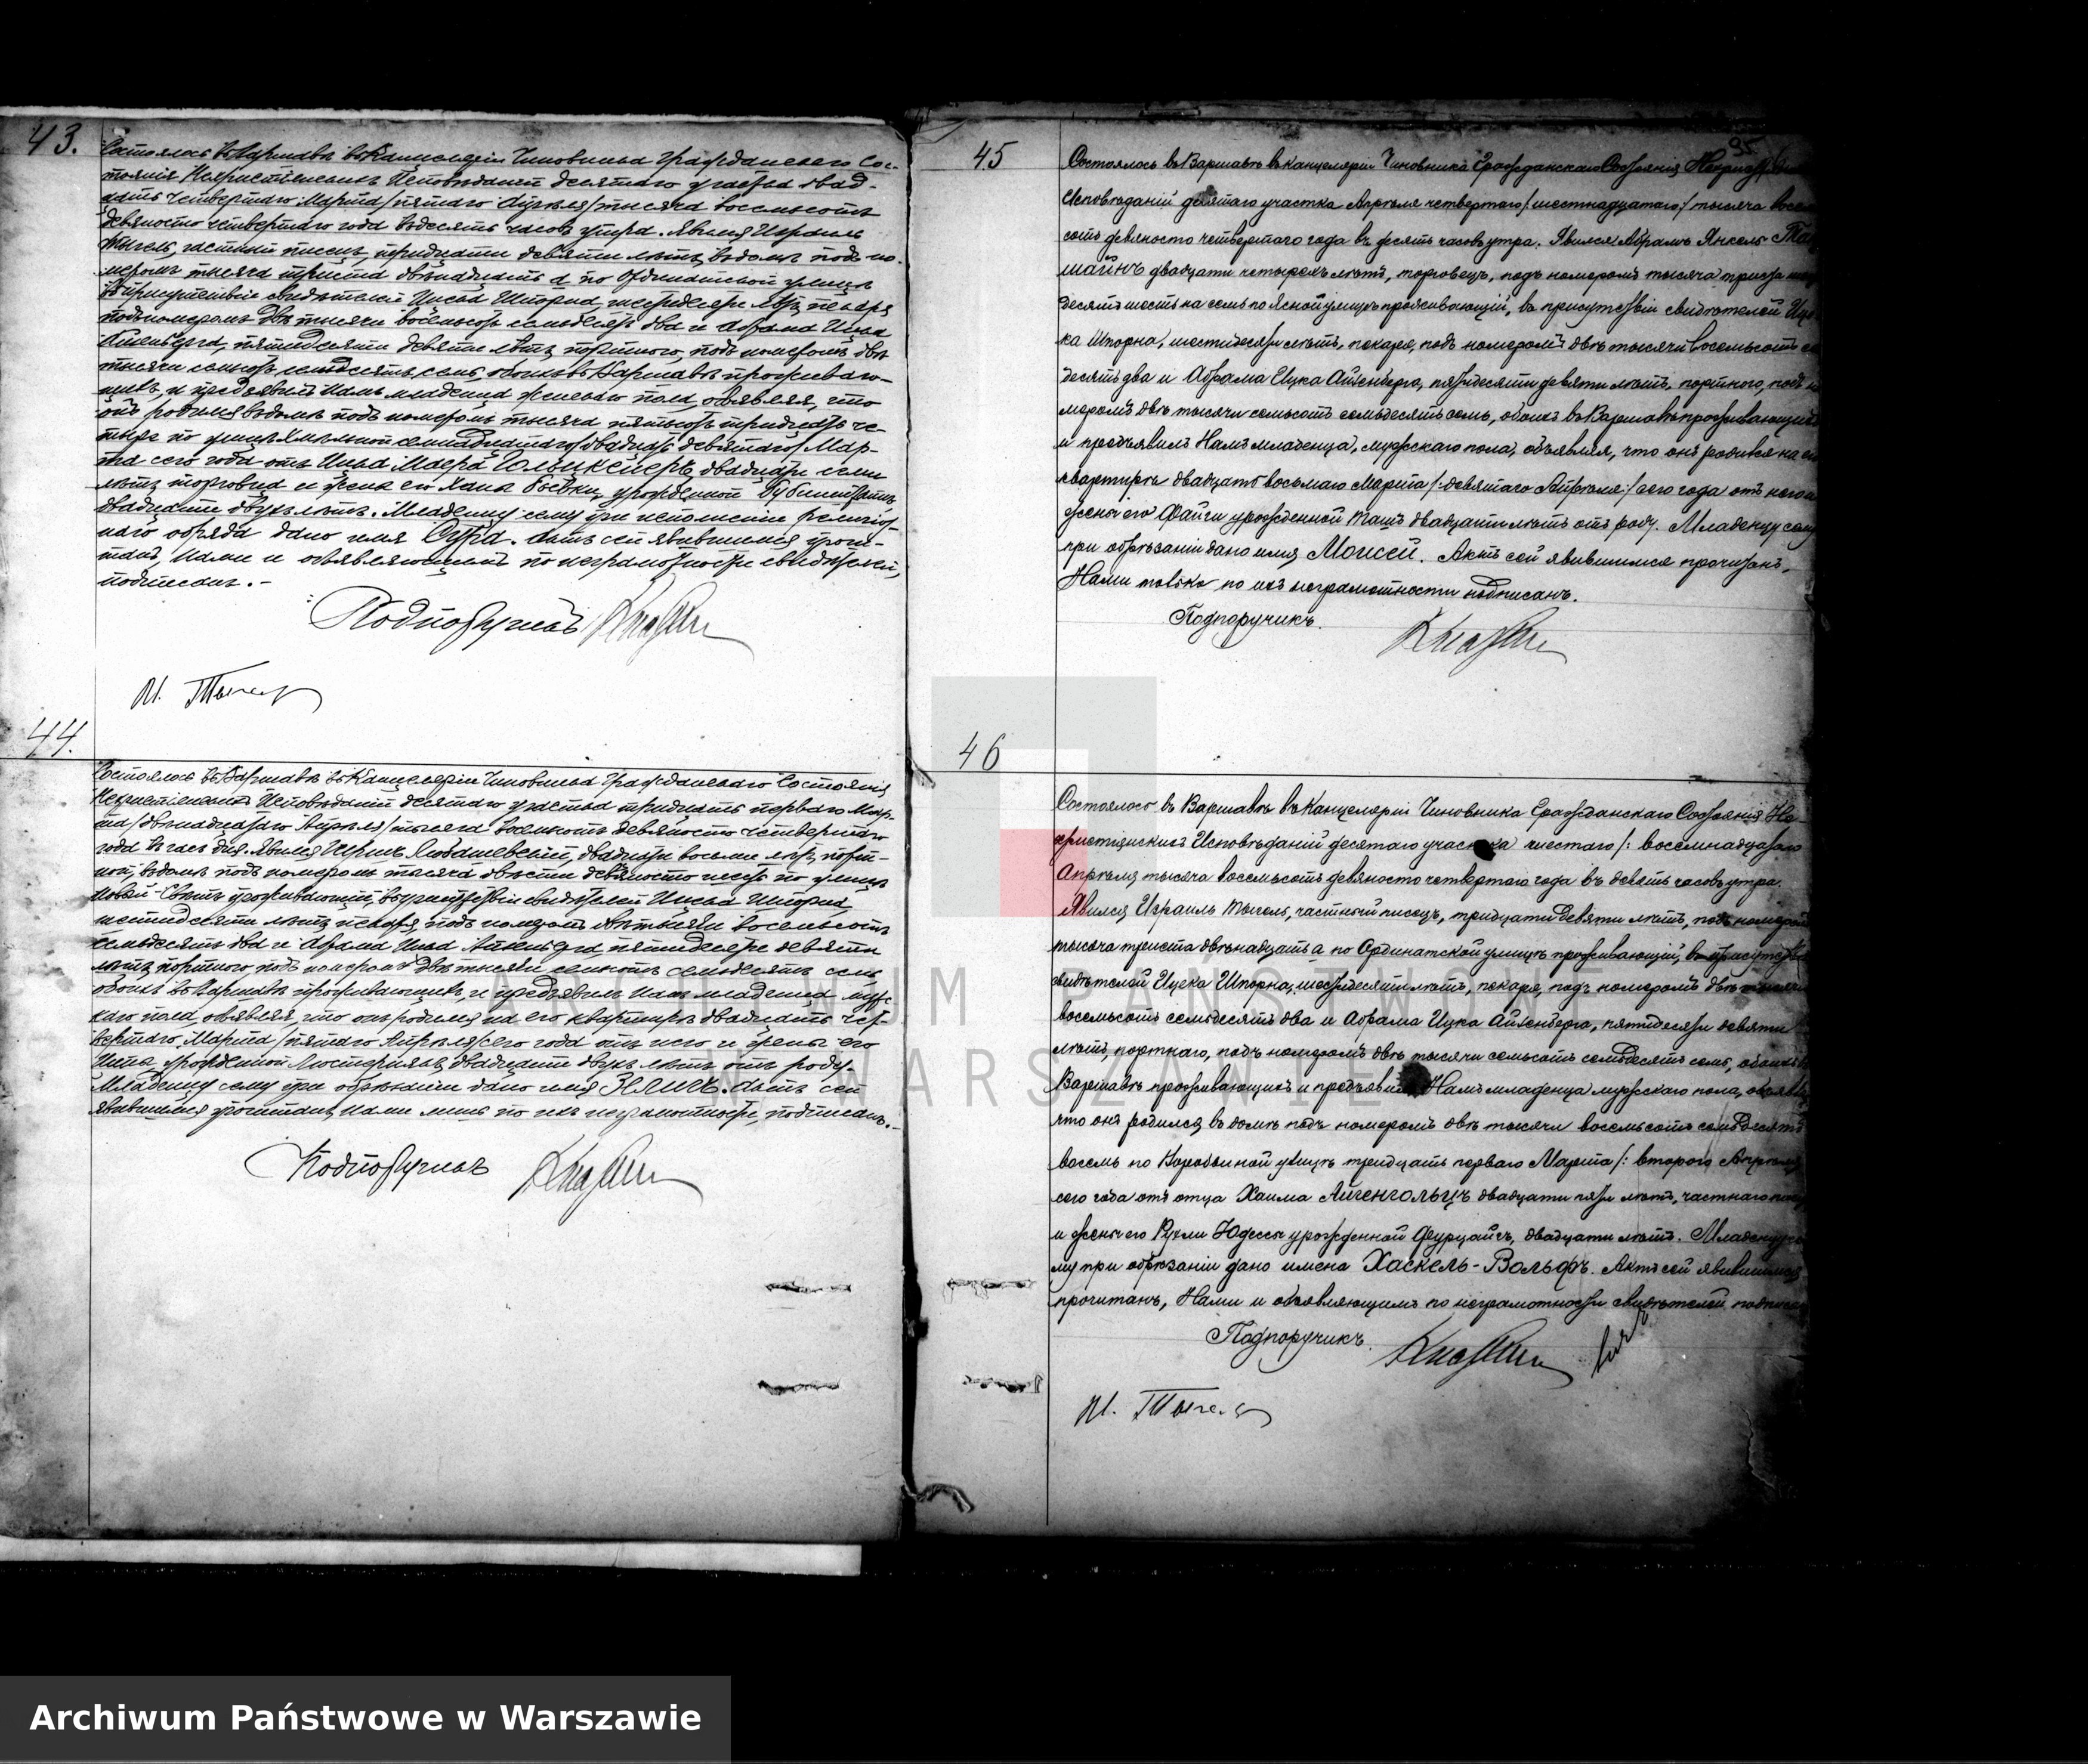 43.
Состоялось въ Варшавѣ въ Канцелярiи Чиновника Гражданскаго Сос-
тоянiя Нехристiанскихъ Исповѣданiй десятаго участка двад-
цать четвертаго Марта /пятаго Апрѣля/ тысяча восемьсотъ
девяносто четвертаго года въ десять часовъ утра. Явился Израиль
Тыгель, частный писецъ, тридцати девяти лѣтъ, въ домѣ подъ но-
меромъ тысяча триста двѣнадцать а по Ординатской улицѣ
въ присутствiи свидѣтелей Ицка Шпорна, шестидесяти лѣтъ, пекаря
подъ номеромъ двѣ тысячи восемьсотъ семьдесятъ два и Абрама Ицка
Айзенберга, пятидесяти девяти лѣтъ, портного, подъ номеромъ двѣ
тысячи семьсотъ семьдесятъ семь, обоихъ въ Варшавѣ проживаю-
щихъ, и предъявилъ Намъ младенца женскаго пола, объявляя, что
онъ родился въ домѣ подъ номеромъ тысяча пятьсотъ тридцать че-
тыре по улицѣ Хмельной семнадцатаго /двадцать девятаго/ Мар-
та сего года отъ Ицка Маера двадцати семи
лѣтъ торговца и жены его Хана урожденной
двадцати двухъ лѣтъ. Младенцу сему при исполненiи религiоз-
наго обряда дано имя Сура. Актъ сей явившимся прочи-
танъ, Нами и объявляющимъ по неграмотности свидѣтелей,
подписанъ.-
Подпоручикъ
И. Тыгель
44.
Состоялось въ Варшавѣ въ Канцелярiи Чиновника Гражданскаго Состоянiя
Нехристiанскихъ Исповѣданiй десятаго участка тридцать перваго Мар-
та /двѣнадцатаго Апрѣля/ тысяча восемьсотъ девяносто четвертаго
года въ часъ дня. Явился Герцъ Любашевскiй, двадцати восьми лѣтъ, порт-
ной, въ домѣ подъ номеромъ тысяча двѣсти девяносто шесть по улицѣ
Новый-Свѣтъ проживающiй, въ присутствiи свидѣтелей Ицка Шпорна,
шестидесяти лѣтъ, пекаря, подъ номеромъ двѣ тысячи восемьсотъ
семьдесятъ два и Абрама Ицка Айзенберга пятидесяти девяти
лѣтъ, портного, подъ номеромъ двѣ тысячи семьсотъ семьдесятъ семь
обоихъ въ Варшавѣ проживающихъ, и предъявилъ Намъ младенца мужс-
каго пола, объявляя, что онъ родился на его квартирѣ двадцать чет-
вертаго Марта /пятаго Апрѣля/ сего года отъ него и жены его
урожденной двадцати двухъ лѣтъ отъ роду.
Младенцу сему при обрѣзанiи дано имя Зеликъ. Актъ сей
явившимся прочитанъ, Нами лишь по ихъ неграмотности, подписанъ.-
Подпоручикъ
45
Состоялось въ Варшавѣ въ Канцелярiи Чиновника Гражданскаго Состоянiя
Исповѣданiй десятаго участка Апрѣля четвертаго /шестнадцатаго/ тысяча восемь
сотъ девяносто четвертаго года въ десять часовъ утра. Явился Абрамъ Янкель
двадцати четырехъ лѣтъ, торговецъ, подъ номеромъ тысяча триста
десятъ шесть на семь по Ясной улицѣ проживающiй, въ присутствiи свидѣтелей Иц-
ка Шпорна, шестидесяти лѣтъ, пекаря, подъ номеромъ двѣ тысячи восемьсотъ
десятъ два и Абрама Ицка Айзенберга, пятидесяти девяти лѣтъ, портного, подъ
меромъ двѣ тысячи семьсотъ семьдесятъ семь, обоихъ въ Варшавѣ проживающихъ
и предъявилъ Намъ младенца, мужскаго пола, объявляя, что онъ родился на его
квартирѣ двадцать восьмаго Марта /:девятаго Апрѣля:/ сего года отъ него и
жены его Файги урожденной Ташъ двадцати лѣтъ отъ роду. Младенцу сему
при обрѣзанiи дано имя Моисей. Актъ сей явившимся прочитанъ,
Нами только по ихъ неграмотности подписанъ.
Подпоручикъ.
46
Состоялось въ Варшавѣ въ Канцелярiи Чиновника Гражданскаго Состоянiя Не-
христiанскихъ Исповѣданiй десятаго участка шестаго /: восемнадцатаго
Апрѣля тысяча восемьсотъ девяносто четвертаго года въ девять часовъ утра.
Явился Израиль Тыгель, частный писецъ, тридцати девяти лѣтъ, подъ номеромъ
тысяча триста двѣнадцать а по Ординатской улицѣ проживающiй, въ присутствiи
свидѣтелей Ицка Шпорна, шестидесяти лѣтъ, пекаря, подъ номеромъ двѣ тысячи
восемьсотъ семьдесятъ два и Абрама Ицка Айзенберга, пятидесяти девяти
лѣтъ, портнаго, подъ номеромъ двѣ тысячи семьсотъ семьдесятъ семь, обоихъ въ
Варшавѣ проживающихъ и предъявилъ Намъ младенца мужскаго пола, объявляя
что онъ родился въ домѣ подъ номеромъ двѣ тысячи восемьсотъ семьдесятъ
восемь по улицѣ тридцать перваго Марта /: втораго Апрѣля
сего года отъ отца Хаима Айгенгольцъ двадцати пяти лѣтъ, частнаго
и жены его Рухли Юдессы урожденной двадцати лѣтъ. Младенцу се-
му при обрѣзанiи дано имена Хаскель-Вольфъ. Актъ сей явившимся
прочитанъ, Нами и объявляющимъ по неграмотности свидѣтелей подписанъ
Подпоручикъ.
И. Тыгель
ARCHIWUM PAŃSTWOWE
W WARSZAWIE
Archiwum Państwowe w Warszawie